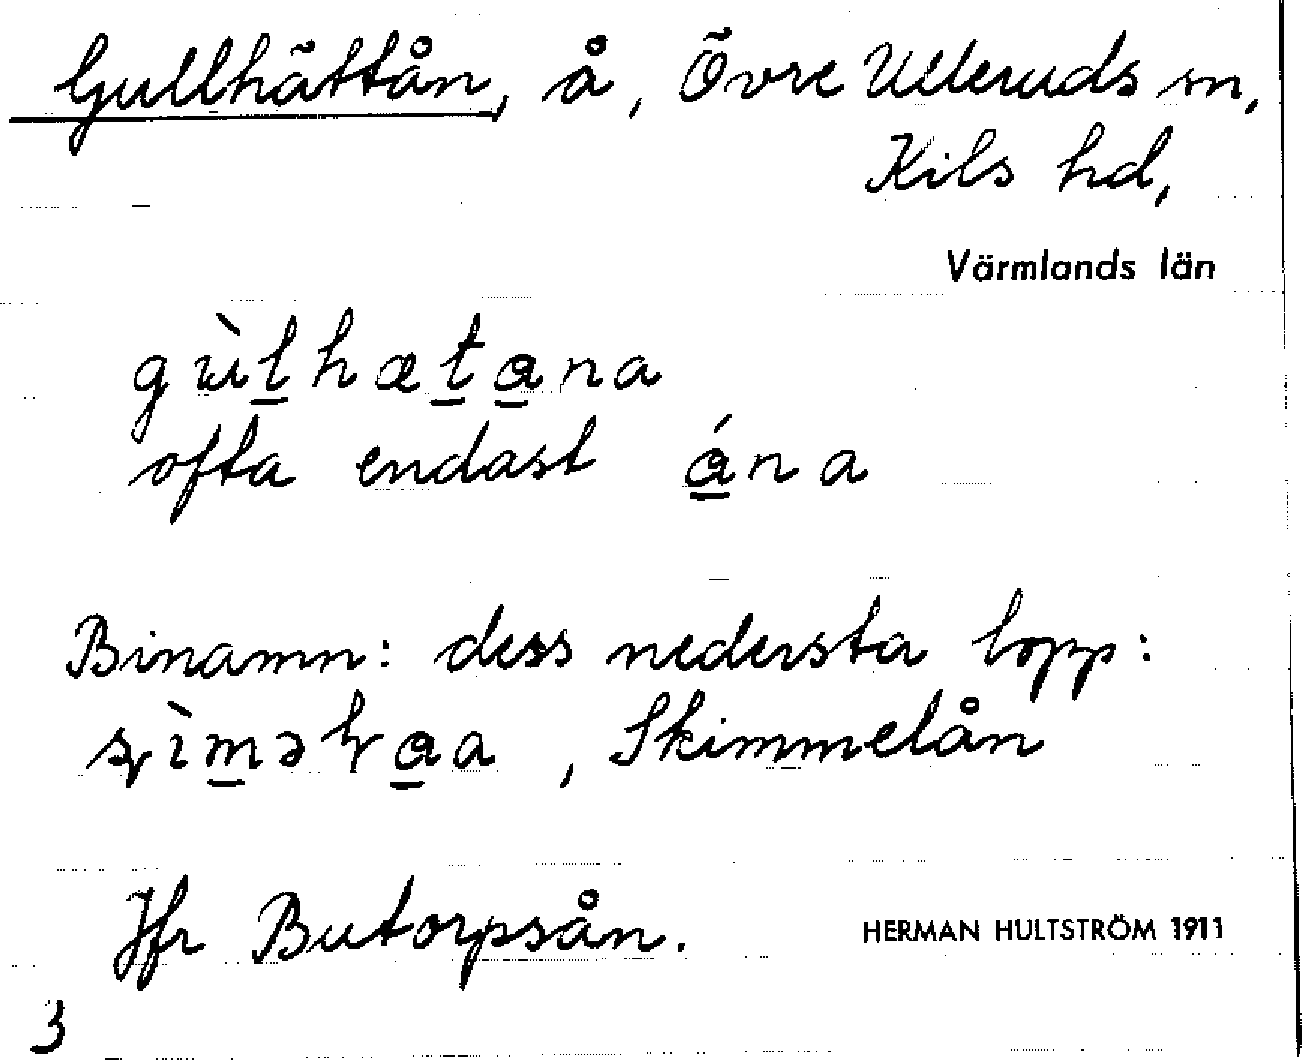 Gullhättån, å, Övre Ulleruds sn,
Kils hd,
Värmlands län
gùl̲hæt̲a̲na
ofta endast á̲na
Binamn: dess nedersta lopp:
, Skimmelån
Jfr Butorpsån.
HERMAN HULTSTRÖM 1911
3